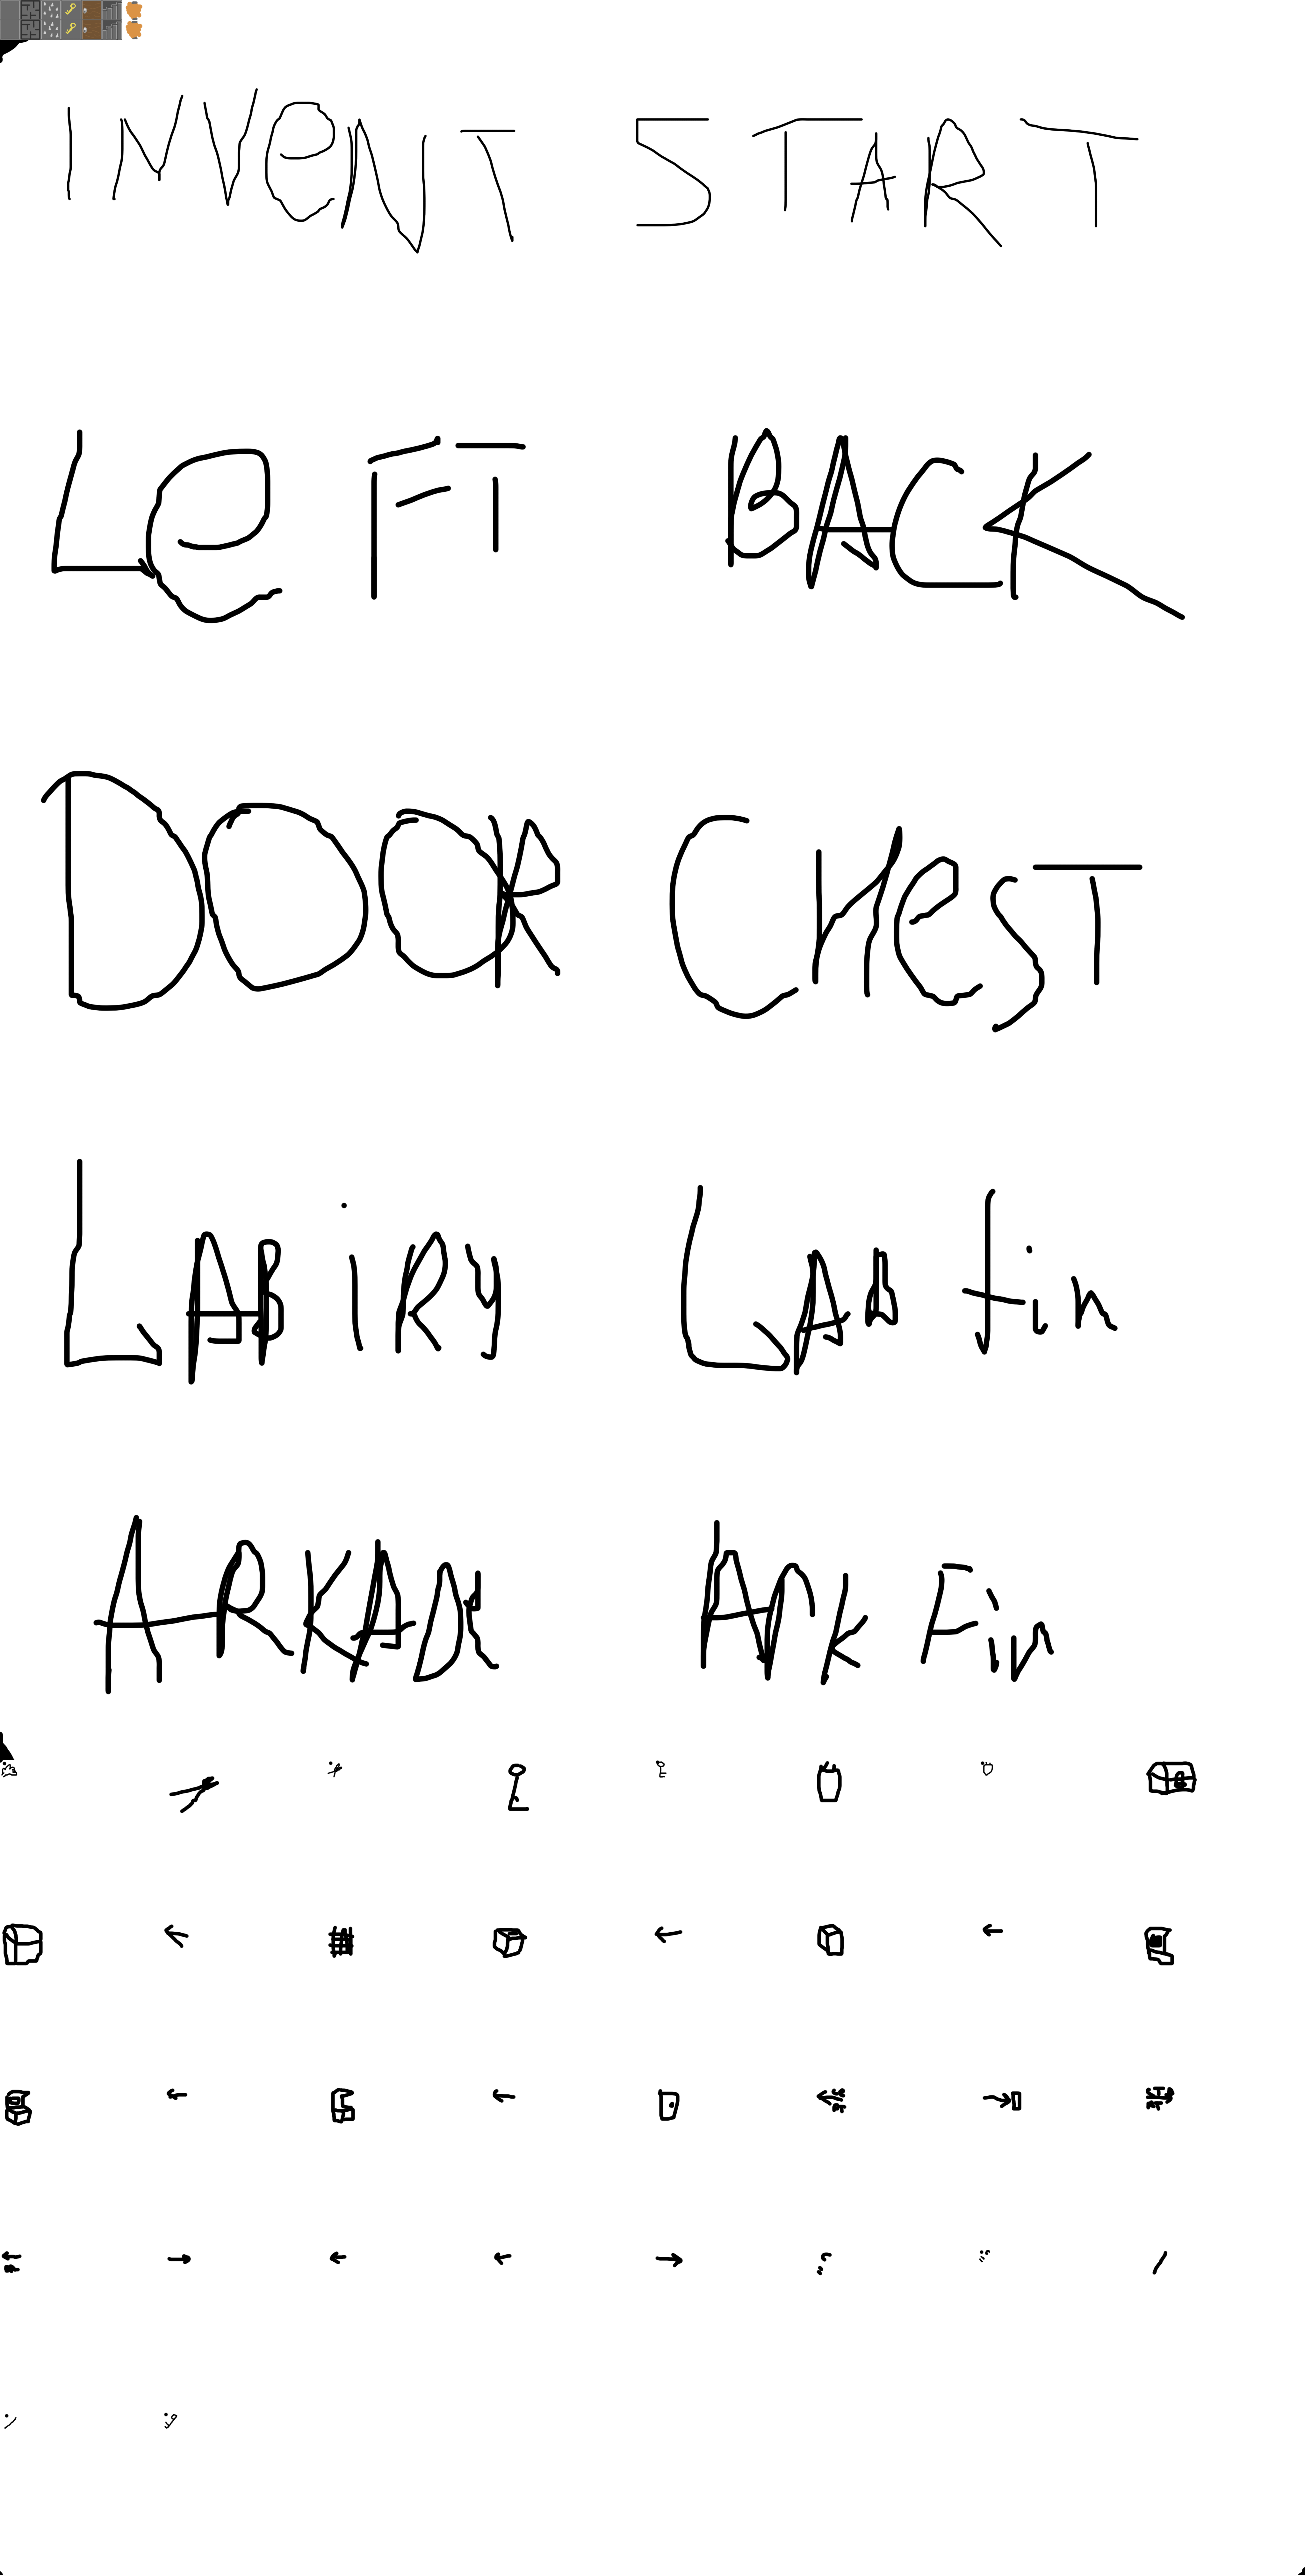 INVeNT START
LeFT BACK
DOOR CHeST
LABiRy LAB fin
ARKADe ARK Fin